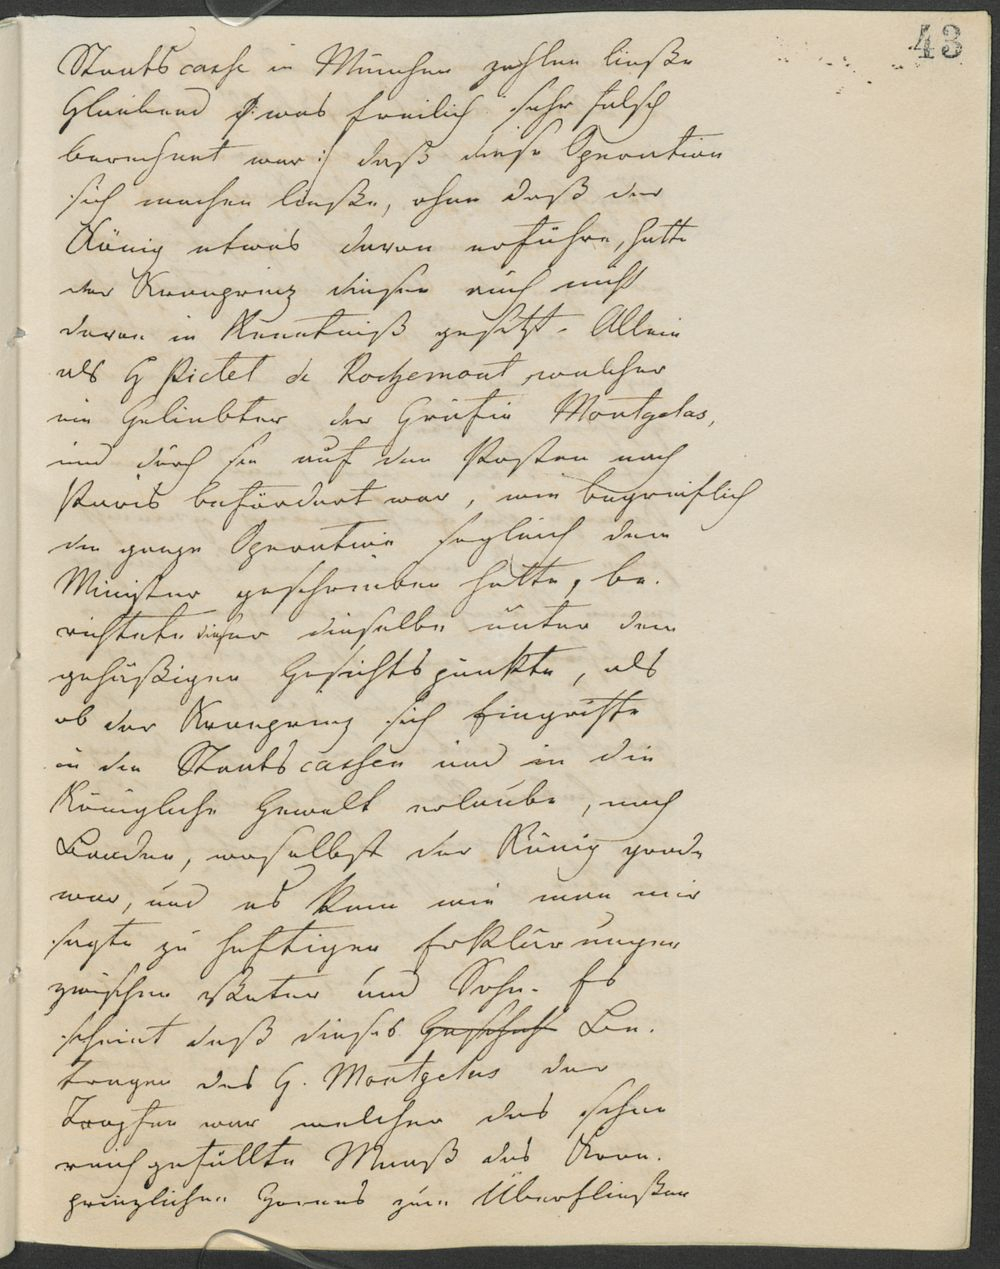 43
Staatscasse in München zahlen ließe
Glaubend /: was freilich sehr falsch
berechnet war :/ daß diese Operation
sich machen ließe, ohne daß der
König etwas davon erführe, hatte
der Kronprinz diesen auch nicht
davon in Kenntniß gesetzt. Allein
als G Pictet de Rochemont welcher
ein Geliebter der Gräfin Montgelas,
und durch sie auf den Posten nach
Paris befördert war, wie begreiflich
die ganze Operation sogleich dem
Minister geschrieben hatte, be-
richtete dieser dieselbe unter dem
gehäßigen Gesichtspunkte, als
ob der Kronprinz sich Eingriffe
in die Staatscassen und in die
Königliche Gewalt erlaube, nach
Baaden, woselbst der König grade
war, und es kam wie man mir
sagte zu heftigen Erklärungen
zwischen Vater und Sohn. Es
scheint daß dieses Geschäft Be-
tragen des G. Montgelas der
Tropfen war welcher das schon
reich gefüllte Maaß des Kron-
prinzlichen Zornes zum Überfließen